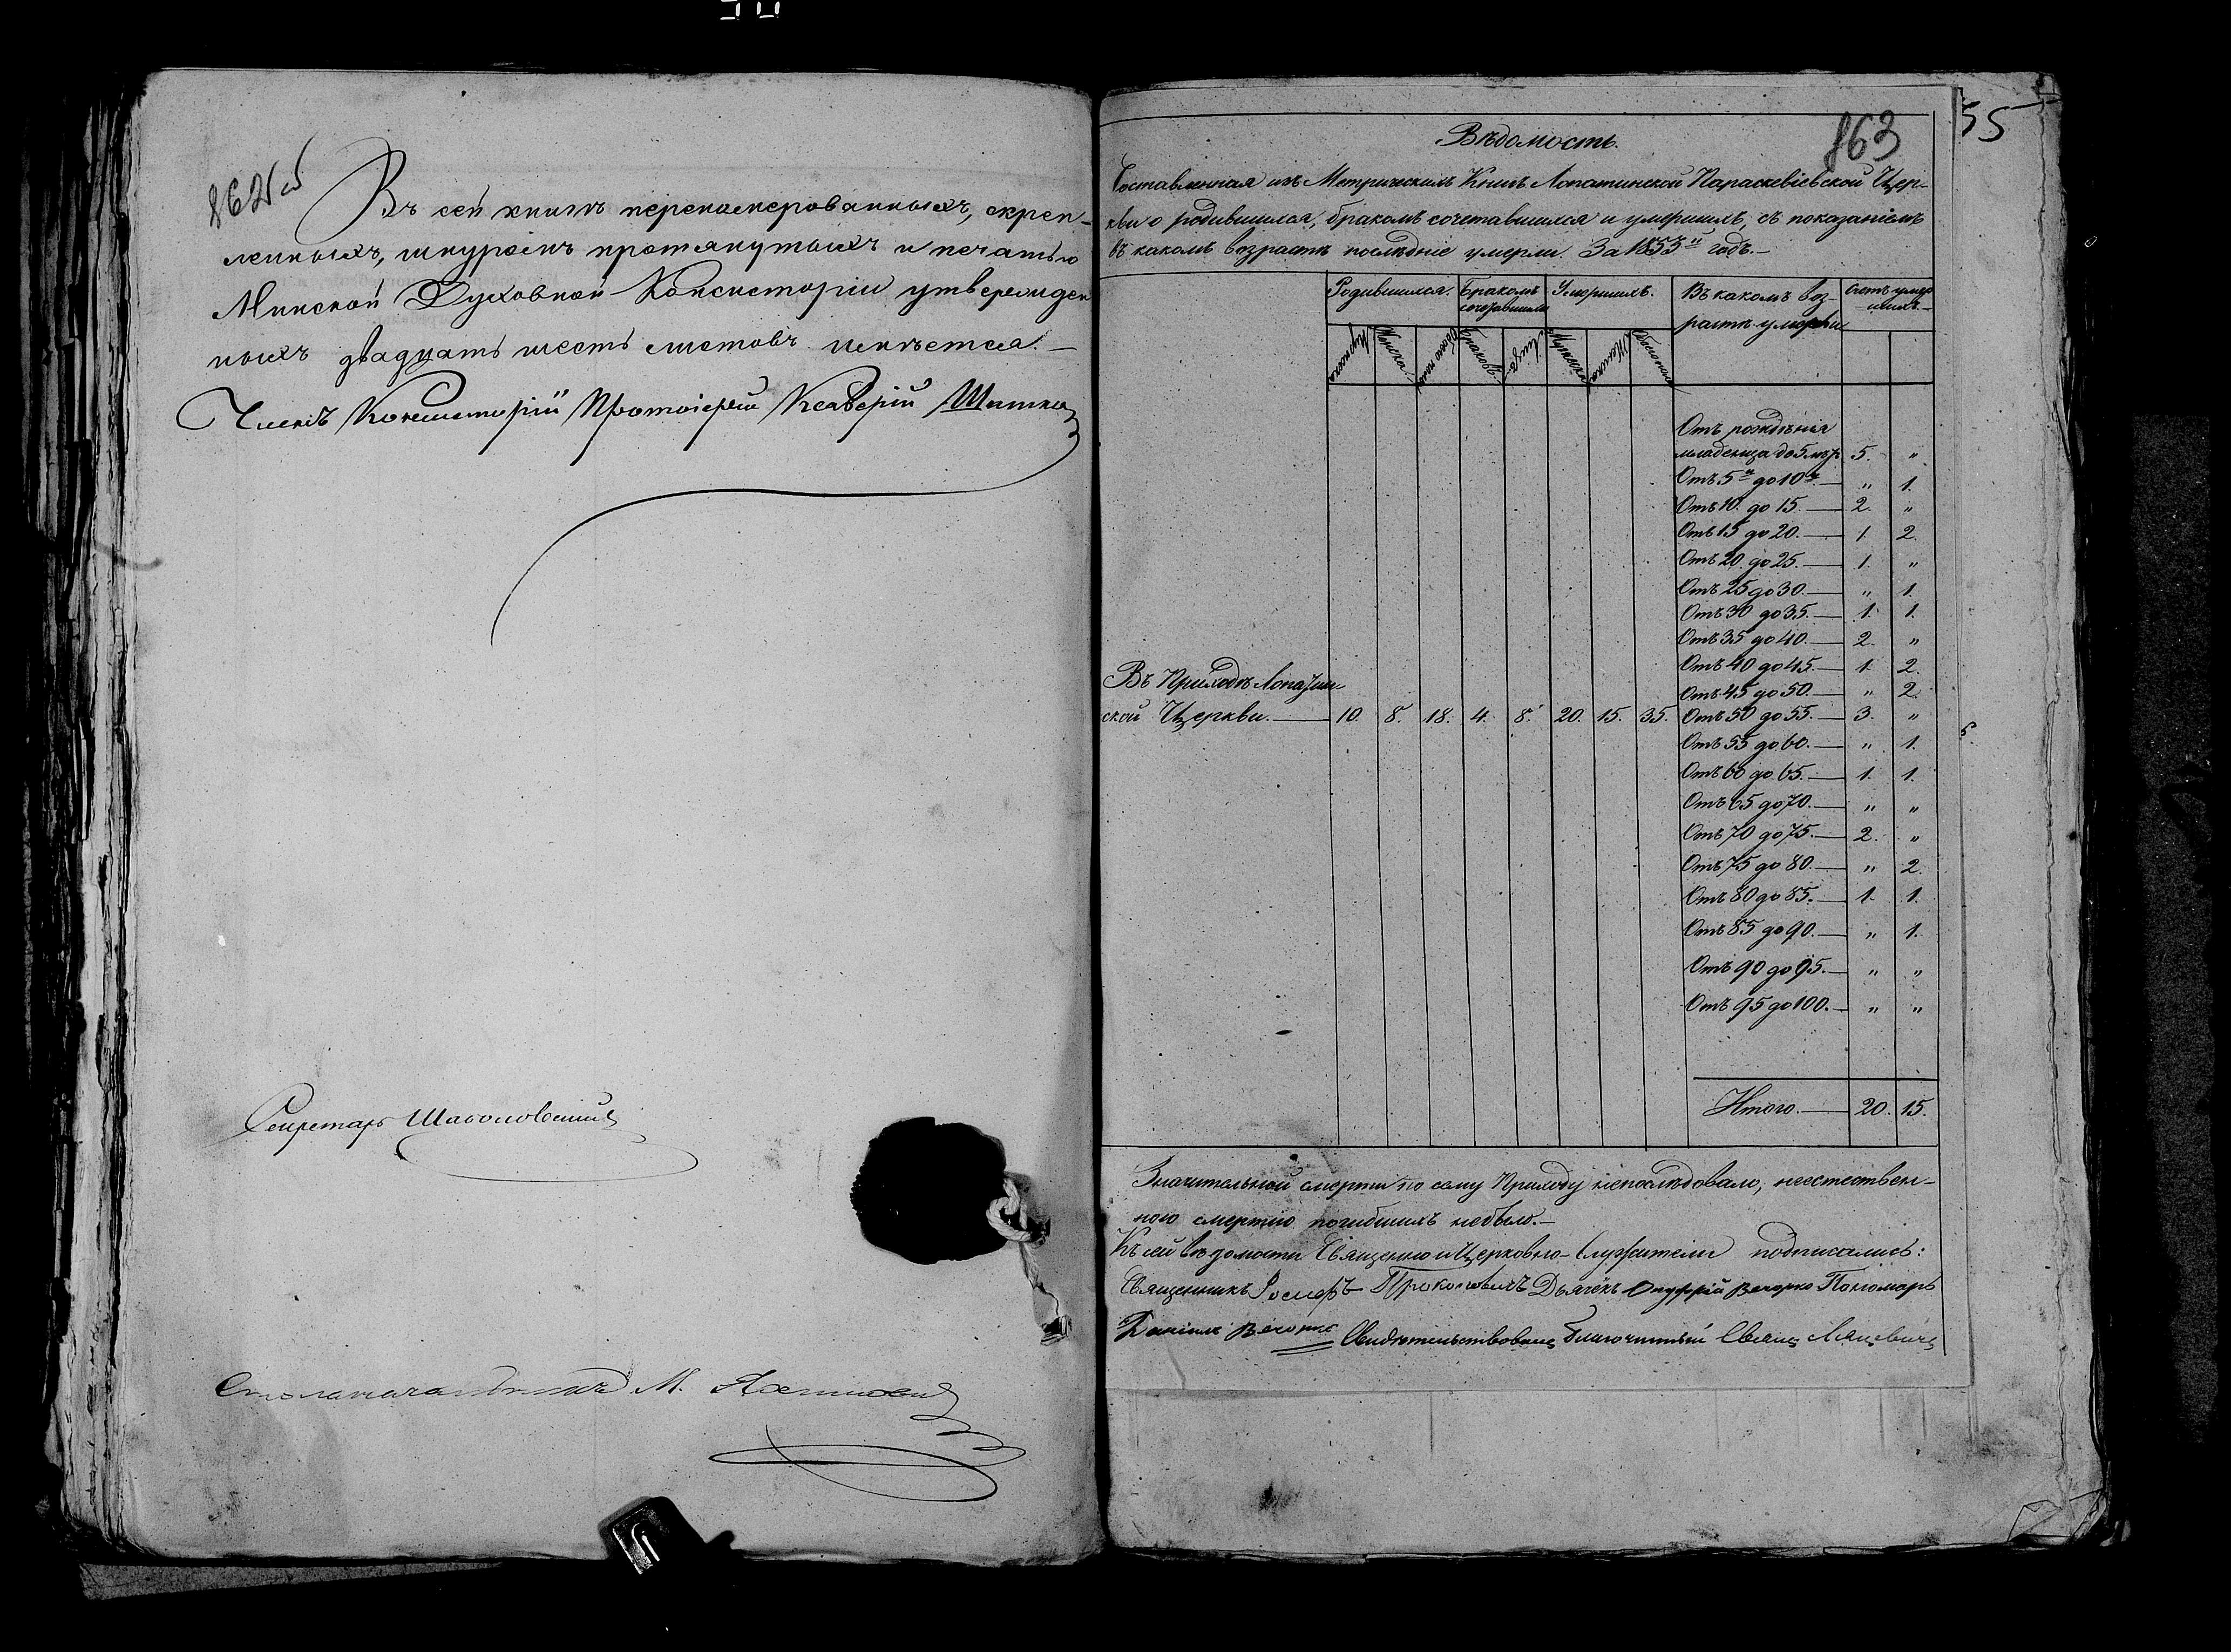 862 об
Въ сей книгѣ перенумерованныхъ, скреп-
ленныхъ, шнуромъ протянутыхъ и печатью
Минской Духовной Консисторіи утвержден
ныхъ двадцать шесть листовъ имѣется.—
Членъ Консисторіи Протоіерей Ксаверій
Секретарь
Столоначальникъ М.
55
863
Вѣдомость.
Составленная изъ Метрическихъ Книгъ Лопатинской Параскевіевской Цер-
кви о родившихся, бракомъ сочетавшихся и умершихъ, съ показаніемъ
въ какомъ возрастѣ послѣдніе умерли. За 1853й годъ.—
Родившихся. Бракомъ сочетавшихся Умершихъ. Въ какомъ воз-
растѣ умерли Счетъ умер
шихъ
Мужска Женска Обоего пола Браковъ Лицъ Мужска Женска Обоего пола
Отъ рожденія
младенца до 5 5. "
Отъ 5и до 10и — " 1.
Отъ 10. до 15. — 2. "
Отъ 15 до 20. — 1 2.
Отъ 20. до 25. — 1. "
Отъ 25 до 30. — " 1.
Отъ 30 до 35. — 1. 1.
Отъ 35 до 40. — 2. "
Отъ 40 до 45. — 1. 2.
Отъ 45 до 50. — " 2.
Въ Приходѣ Лопатин-
ской Церкви. — 10. 8. 18. 4. 8. 20. 15. 35. Отъ 50 до 55. — 3. "
Отъ 55 до 60. — " 1.
Отъ 60 до 65. — 1. 1.
Отъ 65 до 70. — " "
Отъ 70 до 75. — 2. "
Отъ 75 до 80. — " 2.
Отъ 80 до 85. — 1. 1.
Отъ 85 до 90. — " 1.
Отъ 90 до 95. — " "
Отъ 95 до 100. — " "
Итого. — 20. 15.
Значительной смерти по сему Приходу непослѣдовало, неестествен-
ною смертію погибшихъ небыло.—
Къ сей вѣдомости Священно и Церковно-Служители подписались:
Священникъ Іосифъ Прокоповичъ Дьячекъ Онуфрій Вечорко Пономарь
Даніилъ Вечорко Свидѣтельствовалъ Благочинный Свящ Мацевичъ